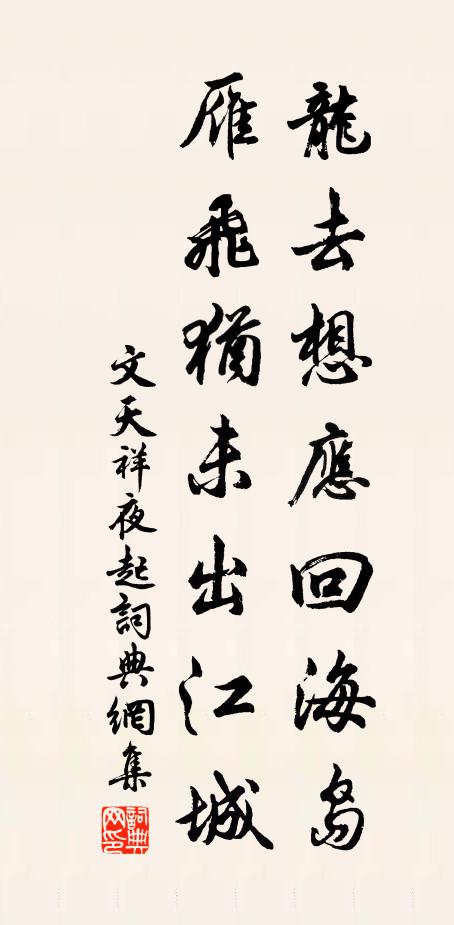 龍去想應回海島
雁飛猶未出江城
文天祥夜起詞典網集
詞典網印